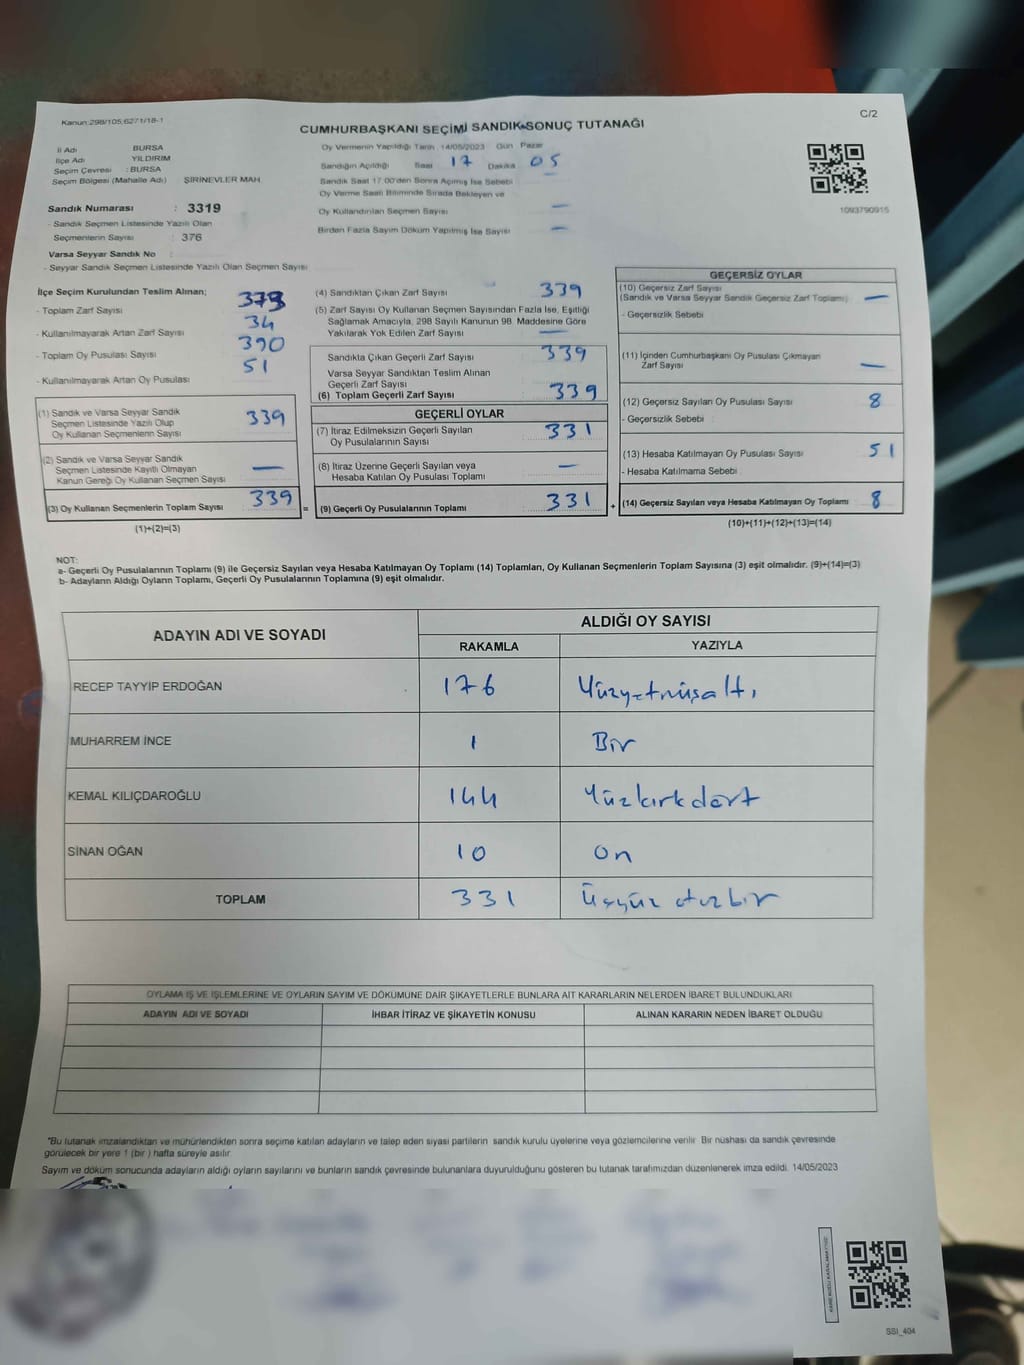 Kanun:298/105,6271/18-1
C/2
CUMHURBAŞKANI SEÇİMİ SANDIK SONUÇ TUTANAĞI
İl Adı BURSA
İlçe Adı YILDIRIM
Seçim Çevresi : BURSA
Seçim Bölgesi (Mahalle Adı) ŞİRİNEVLER MAH.
Sandık Numarası : 3319
- Sandık Seçmen Listesinde Yazılı Olan
Seçmenlerin Sayısı : 376
Varsa Seyyar Sandık No :
- Seyyar Sandık Seçmen Listesinde Yazılı Olan Seçmen Sayısı
Oy Vermenin Yapıldığı Tarih 14/05/2023 Gün Pazar
Sandığın Açıldığı Saat 17 Dakika 05
Sandık Saat 17:00'den Sonra Açılmış İse Sebebi
Oy Verme Saati Bitiminde Sırada Bekleyen ve
Oy Kullandırılan Seçmen Sayısı —
Birden Fazla Sayım Döküm Yapılmış İse Sayısı —
1093790915
İlçe Seçim Kurulundan Teslim Alınan;
- Toplam Zarf Sayısı 373
- Kullanılmayarak Artan Zarf Sayısı 34
- Toplam Oy Pusulası Sayısı 390
- Kullanılmayarak Artan Oy Pusulası 51
(1) Sandık ve Varsa Seyyar Sandık
Seçmen Listesinde Yazılı Olup
Oy Kullanan Seçmenlerin Sayısı 339
(2) Sandık ve Varsa Seyyar Sandık
Seçmen Listesinde Kayıtlı Olmayan
Kanun Gereği Oy Kullanan Seçmen Sayısı —
(3) Oy Kullanan Seçmenlerin Toplam Sayısı 339 =
(1)+(2)=(3)
(4) Sandıktan Çıkan Zarf Sayısı 339
(5) Zarf Sayısı Oy Kullanan Seçmen Sayısından Fazla İse, Eşitliği
Sağlamak Amacıyla, 298 Sayılı Kanunun 98. Maddesine Göre
Yakılarak Yok Edilen Zarf Sayısı —
Sandıkta Çıkan Geçerli Zarf Sayısı 339
Varsa Seyyar Sandıktan Teslim Alınan
Geçerli Zarf Sayısı
(6) Toplam Geçerli Zarf Sayısı 339
GEÇERLİ OYLAR
(7) İtiraz Edilmeksizin Geçerli Sayılan
Oy Pusulalarının Sayısı 331
(8) İtiraz Üzerine Geçerli Sayılan veya
Hesaba Katılan Oy Pusulası Toplamı —
(9) Geçerli Oy Pusulalarının Toplamı 331 +
GEÇERSİZ OYLAR
(10) Geçersiz Zarf Sayısı
(Sandık ve Varsa Seyyar Sandık Geçersiz Zarf Toplamı) —
- Geçersizlik Sebebi
(11) İçinden Cumhurbaşkanı Oy Pusulası Çıkmayan
Zarf Sayısı —
(12) Geçersiz Sayılan Oy Pusulası Sayısı 8
- Geçersizlik Sebebi
(13) Hesaba Katılmayan Oy Pusulası Sayısı 51
- Hesaba Katılmama Sebebi
(14) Geçersiz Sayılan veya Hesaba Katılmayan Oy Toplamı 8
(10)+(11)+(12)+(13)=(14)
NOT:
a- Geçerli Oy Pusulalarının Toplamı (9) ile Geçersiz Sayılan veya Hesaba Katılmayan Oy Toplamı (14) Toplamları, Oy Kullanan Seçmenlerin Toplam Sayısına (3) eşit olmalıdır. (9)+(14)=(3)
b- Adayların Aldığı Oyların Toplamı, Geçerli Oy Pusulalarının Toplamına (9) eşit olmalıdır.
ADAYIN ADI VE SOYADI ALDIĞI OY SAYISI
RAKAMLA YAZIYLA
RECEP TAYYİP ERDOĞAN 176 Yüzyetmişaltı
MUHARREM İNCE 1 Bir
KEMAL KILIÇDAROĞLU 144 Yüzkırkdört
SİNAN OĞAN 10 On
TOPLAM 331 Üçyüz otuzbir
OYLAMA İŞ VE İŞLEMLERİNE VE OYLARIN SAYIM VE DÖKÜMÜNE DAİR ŞİKAYETLERLE BUNLARA AİT KARARLARIN NELERDEN İBARET BULUNDUKLARI
ADAYIN ADI VE SOYADI İHBAR İTİRAZ VE ŞİKAYETİN KONUSU ALINAN KARARIN NEDEN İBARET OLDUĞU
"Bu tutanak imzalandıktan ve mühürlendikten sonra seçime katılan adayların ve talep eden siyasi partilerin sandık kurulu üyelerine veya gözlemcilerine verilir. Bir nüshası da sandık çevresinde
görülecek bir yere 1 (bir ) hafta süreyle asılır.
Sayım ve döküm sonucunda adayların aldığı oyların sayılarını ve bunların sandık çevresinde bulunanlara duyurulduğunu gösteren bu tutanak tarafımızdan düzenlenerek imza edildi. 14/05/2023
SSI_404